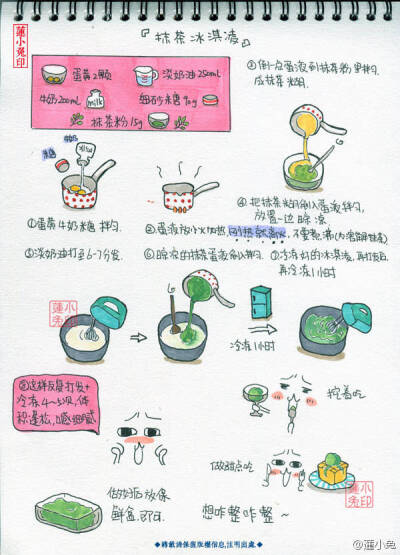 蓮小兔印
『抹茶冰淇凌』
蛋黄2颗
淡奶油250ml
牛奶200ml
milk
细砂糖90g
抹茶粉15g
③倒一点蛋液到抹茶粉里拌匀
成抹茶糊.
牛奶
①蛋黄牛奶糖拌匀.
②蛋液放小火加热,
不要煮沸
④把抹茶糊倒入蛋液拌匀,
放置一边晾凉
⑤淡奶油打至6-7分发.
⑥晾凉的抹茶蛋液倒入拌匀.
⑦冷冻好的冰淇淋,再打发后,
再冷冻1小时
蓮小兔印
冷冻1小时
⑧这样反复打发+
冷冻4~5次,体
积蓬松,口感细腻
挖着吃
做甜点吃
做好后放保
鲜盒,即可.
想咋整咋整~
蓮小兔印
◆轉載請保留版權信息,注明出處◆
@蓮小兔